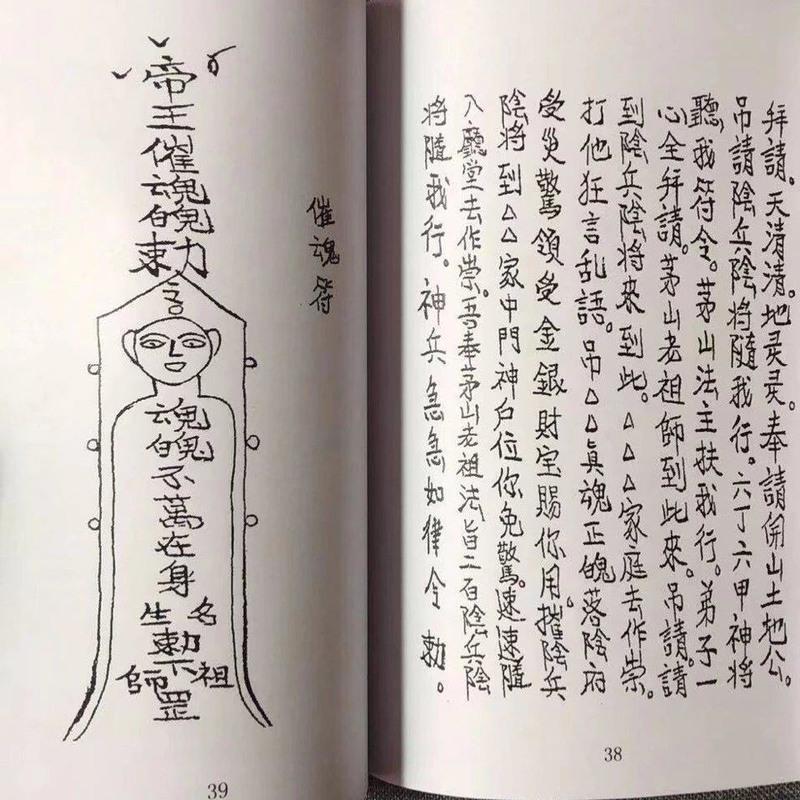 拜請。天清清。地灵灵。奉請開山土地公。
吊請陰兵陰將隨我行。六丁六甲神將
聽我符令。茅山法主扶我行。弟子一
心全拜請。茅山老祖師到此來。吊請。請
到陰兵陰將來到此。△△△家庭去作祟。
打他狂言乱語。吊△△真魂正魄落陰府
受災驚領受金銀財宝賜你用。摧陰兵
陰將到△△家中門神户位你免驚。速速隨
入廳堂去作祟。吾奉茅山老祖法旨二百陰兵陰
將隨我行。神兵急急如律令勅。
38
催魂符
帝王催魂魄勅
魂魄不萬在身
名生
勅下罡
祖師
39